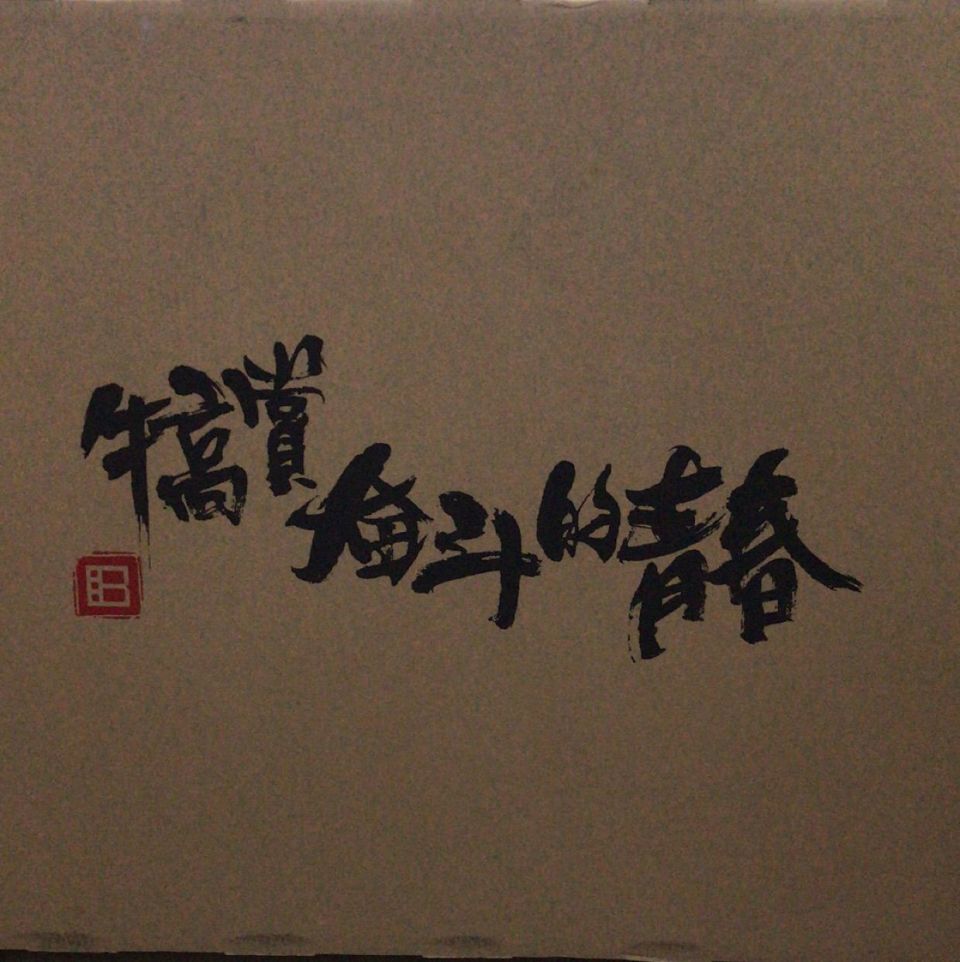 犒賞奋斗的青春